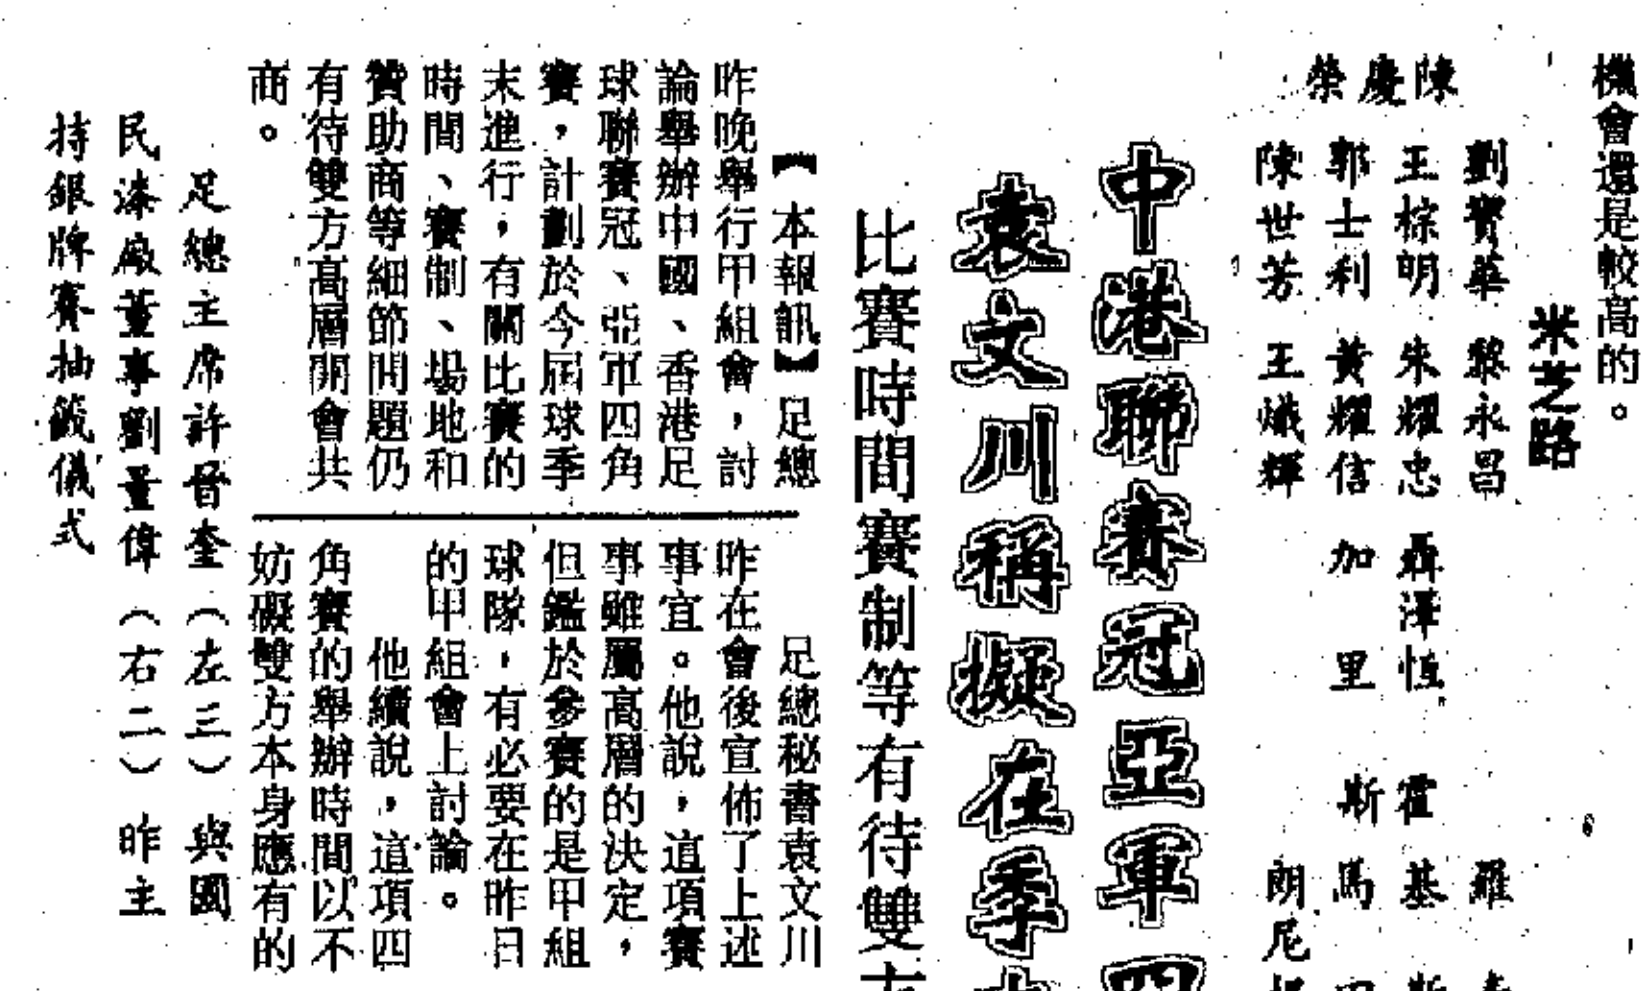 機會還是較高的。
米芝路
陳慶榮
劉寶華 黎永昌 羅
王棕明 朱耀忠 聶澤恒 霍基斯
郭士利 黃耀信 加里 斯馬
陳世芳 王熾輝 朗尼
中港聯賽冠亞軍四
袁文川稱擬在季
比賽時間賽制等有待雙方
【本報訊】足總
昨晚舉行甲組會，討
論舉辦中國、香港足
球聯賽冠、亞軍四角
賽，計劃於今屆球季
末進行，有關比賽的
時間、賽制、場地和
贊助商等細節問題仍
有待雙方高層開會共
商。
足總秘書袁文川
昨在會後宣佈了上述
事宜。他說，這項賽
事雖屬高層的決定，
但鑑於參賽的是甲組
球隊，有必要在昨日
的甲組會上討論。
他續說，這項四
角賽的舉辦時間以不
妨礙雙方本身應有的
足總主席許晉奎（左三）與國
民漆廠董事劉量偉（右二）昨主
持銀牌賽抽籤儀式